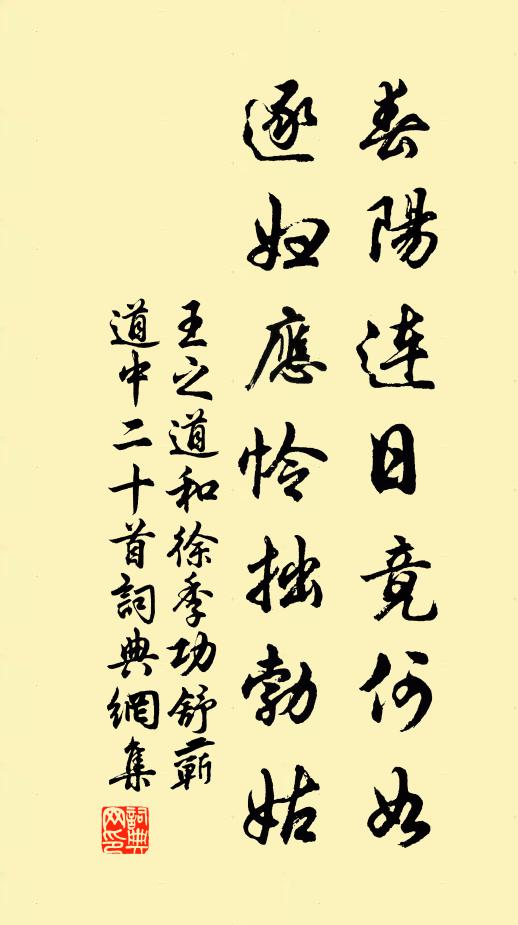 春陽連日竟何如
逐婦應怜拙勃姑
王之道和徐季功舒蘄
道中二十首詞典網集
詞典網印